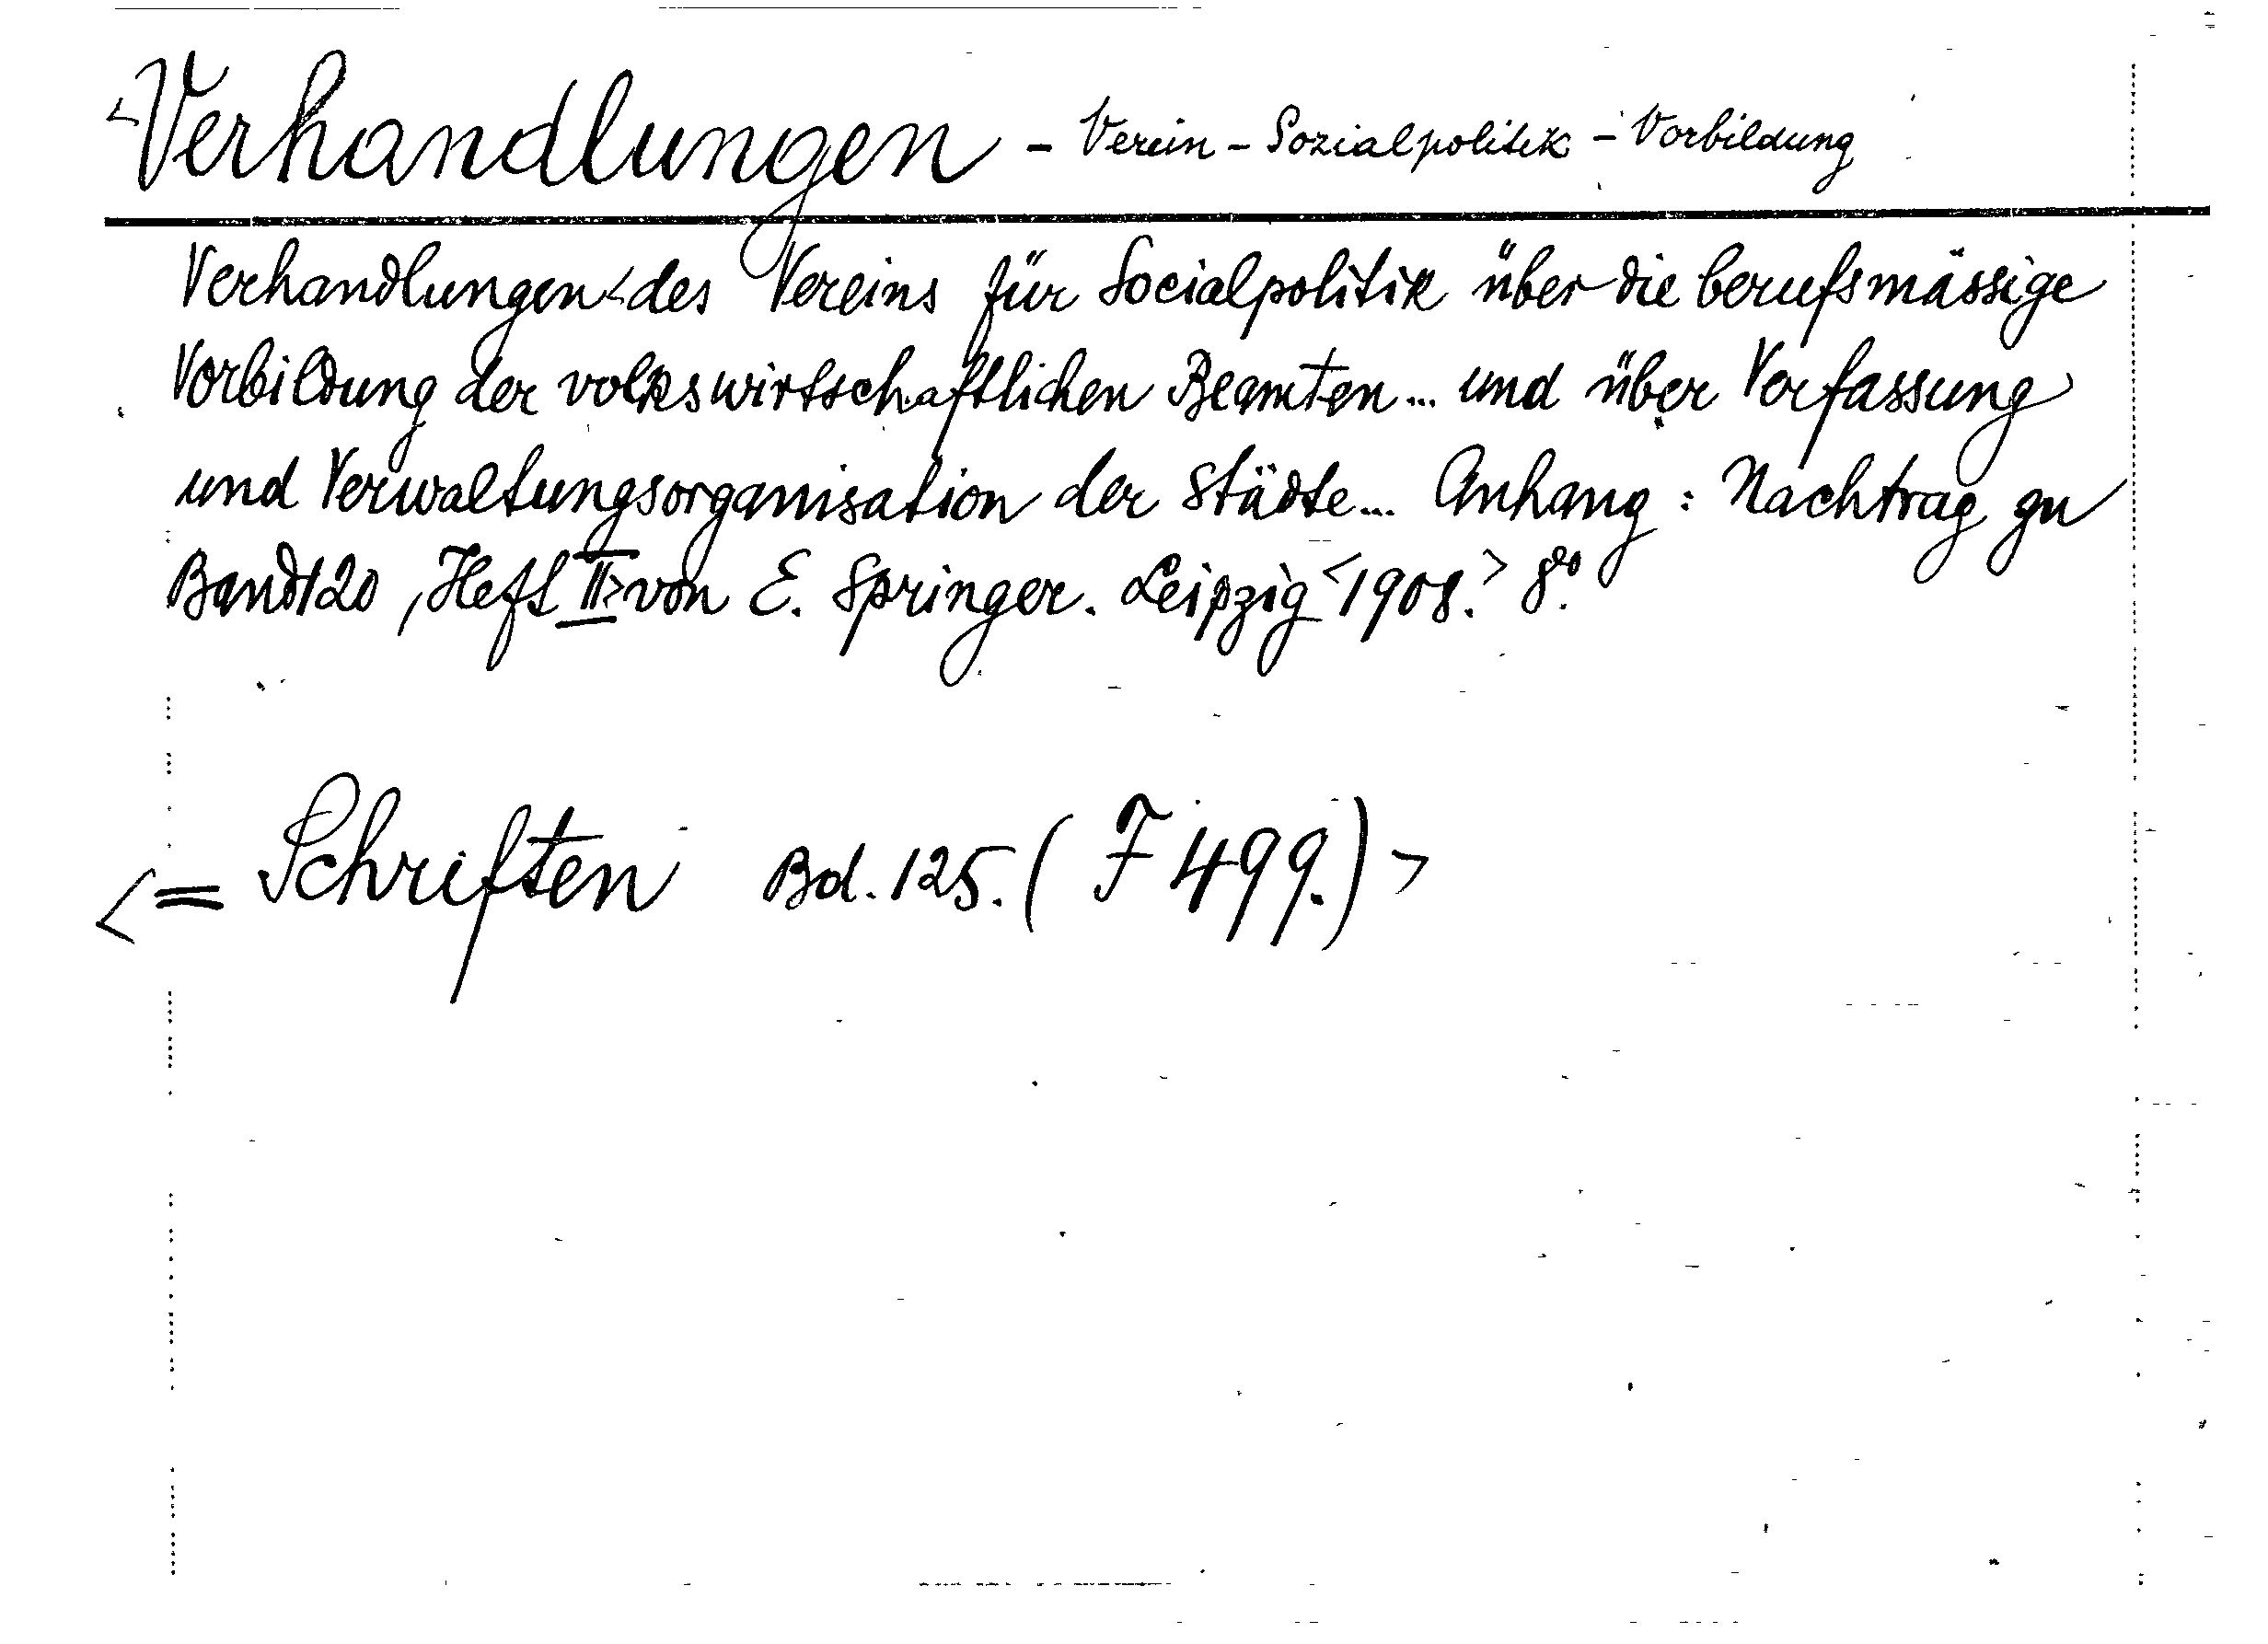 <Verhandlungen - Verein - Sozialpolitik - Vorbildung
Verhandlungen <des Vereins für Socialpolitik über die berufsmässige
Vorbildung der volkswirtschaftlichen Beamten... und über Verfassung
und Verwaltungsorganisation der Städte... Anhang: Nachtrag zu
Band 120, Heft II> von E. Springer. Leipzig <1908.> 8°.
<= Schriften Bd. 125. (F 499.)>